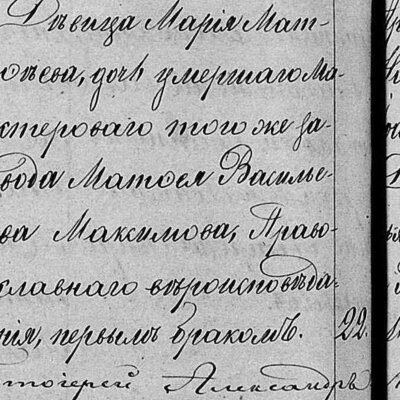 Дѣвица Марія Мат-
ѳѣева, дочь умершаго Ма-
стероваго того же за-
вода Матѳея Василье-
ва Максимова, Право-
славнаго вѣроисповѣда-
нія, первымъ бракомъ. 22.
Александръ